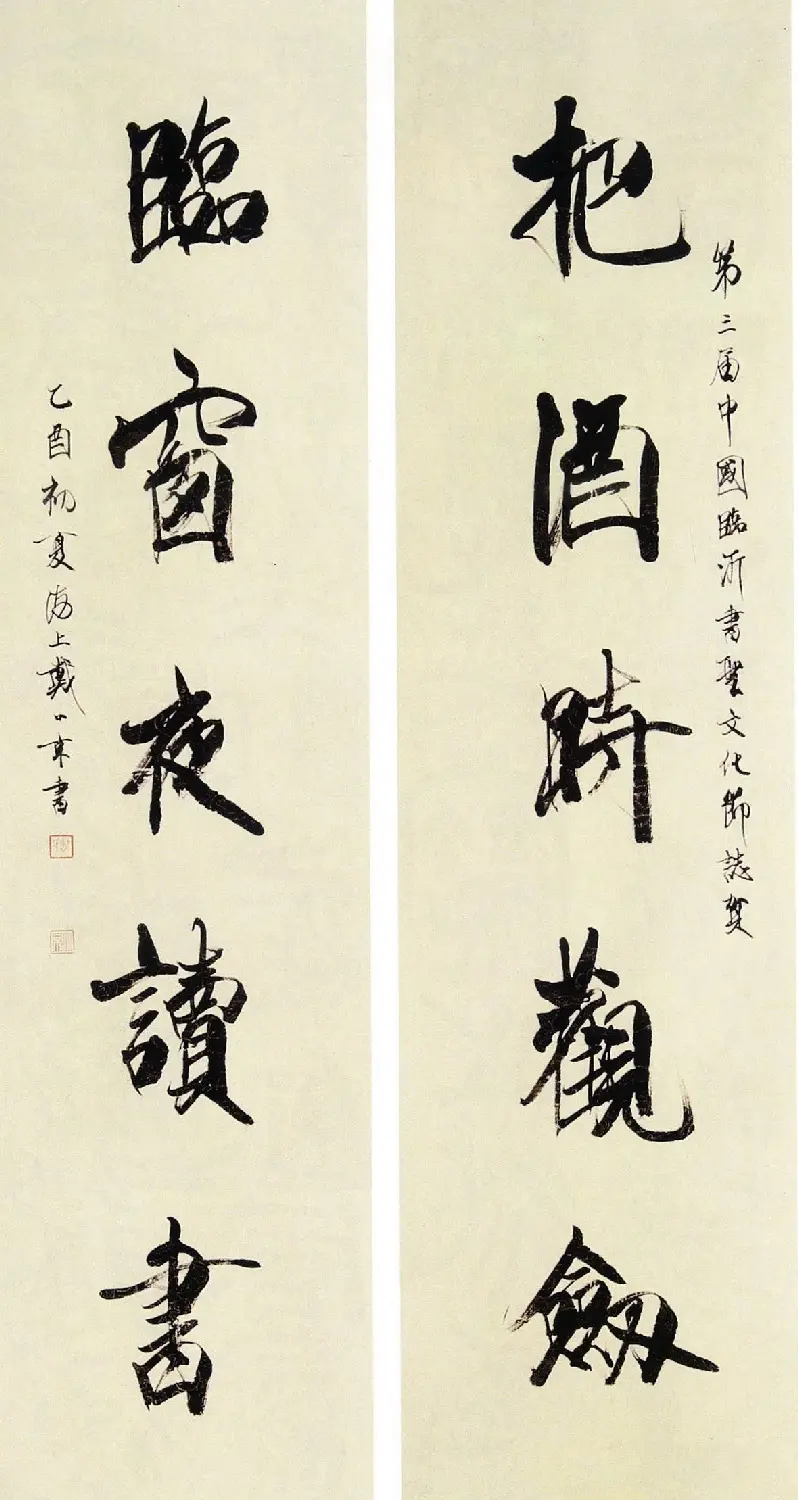 第三届中國臨沂書聖文化節誌賀
把酒時觀劔
臨窗夜讀書
乙酉初夏海上戴小京書